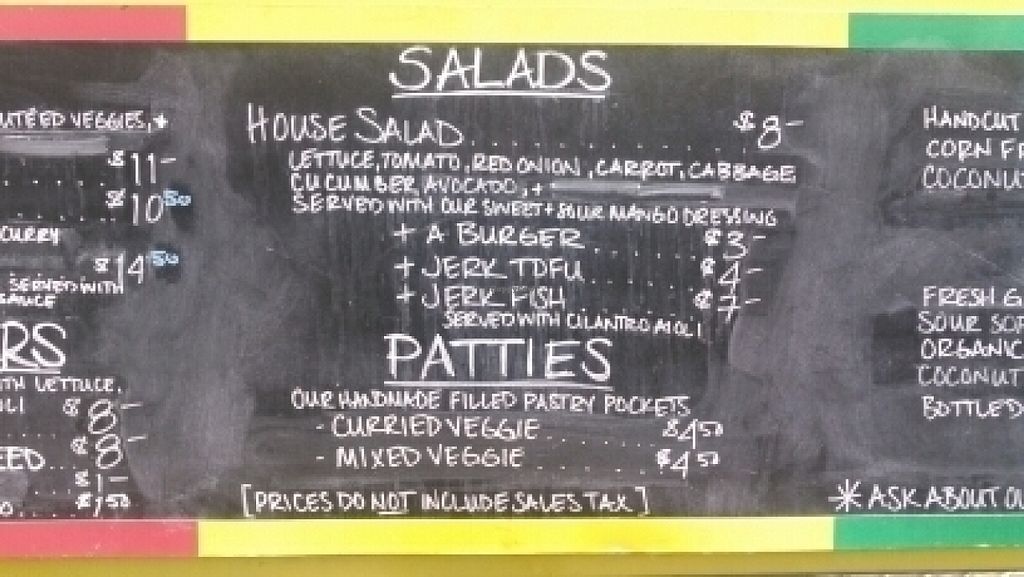 UTÉED VEGGIES, +
$11-
$10 50
CURRY
$14 50
SERVED WITH
SAUCE
RS
ITH LETTUCE.
OLI $8-
$8-
EED..
$1-
O. $1,50
SALADS
HOUSE SALAD........... $8-
LETTUCE, TOMATO, RED ONION, CARROT, CABBAGE,
CUCUMBER, AVOCADO, +
SERVED WITH OUR SWEET + SOUR MANGO DRESSING
+ A BURGER...... $3-
+ JERK TOFU...... $4-
+ JERK FISH $7-
SERVED WITH CILANTRO AIOLI
PATTIES
OUR HANDMADE FILLED PASTRY POCKETS
- CURRIED VEGGIE....... $4 50
- MIXED VEGGIE....... $4 50
[PRICES DO NOT INCLUDE SALES TAX]
HANDCUT
CORN FR
COCONU
FRESH G
SOUR SOP
ORGANIC
COCONUT
BOTTLED
* ASK ABOUT OU